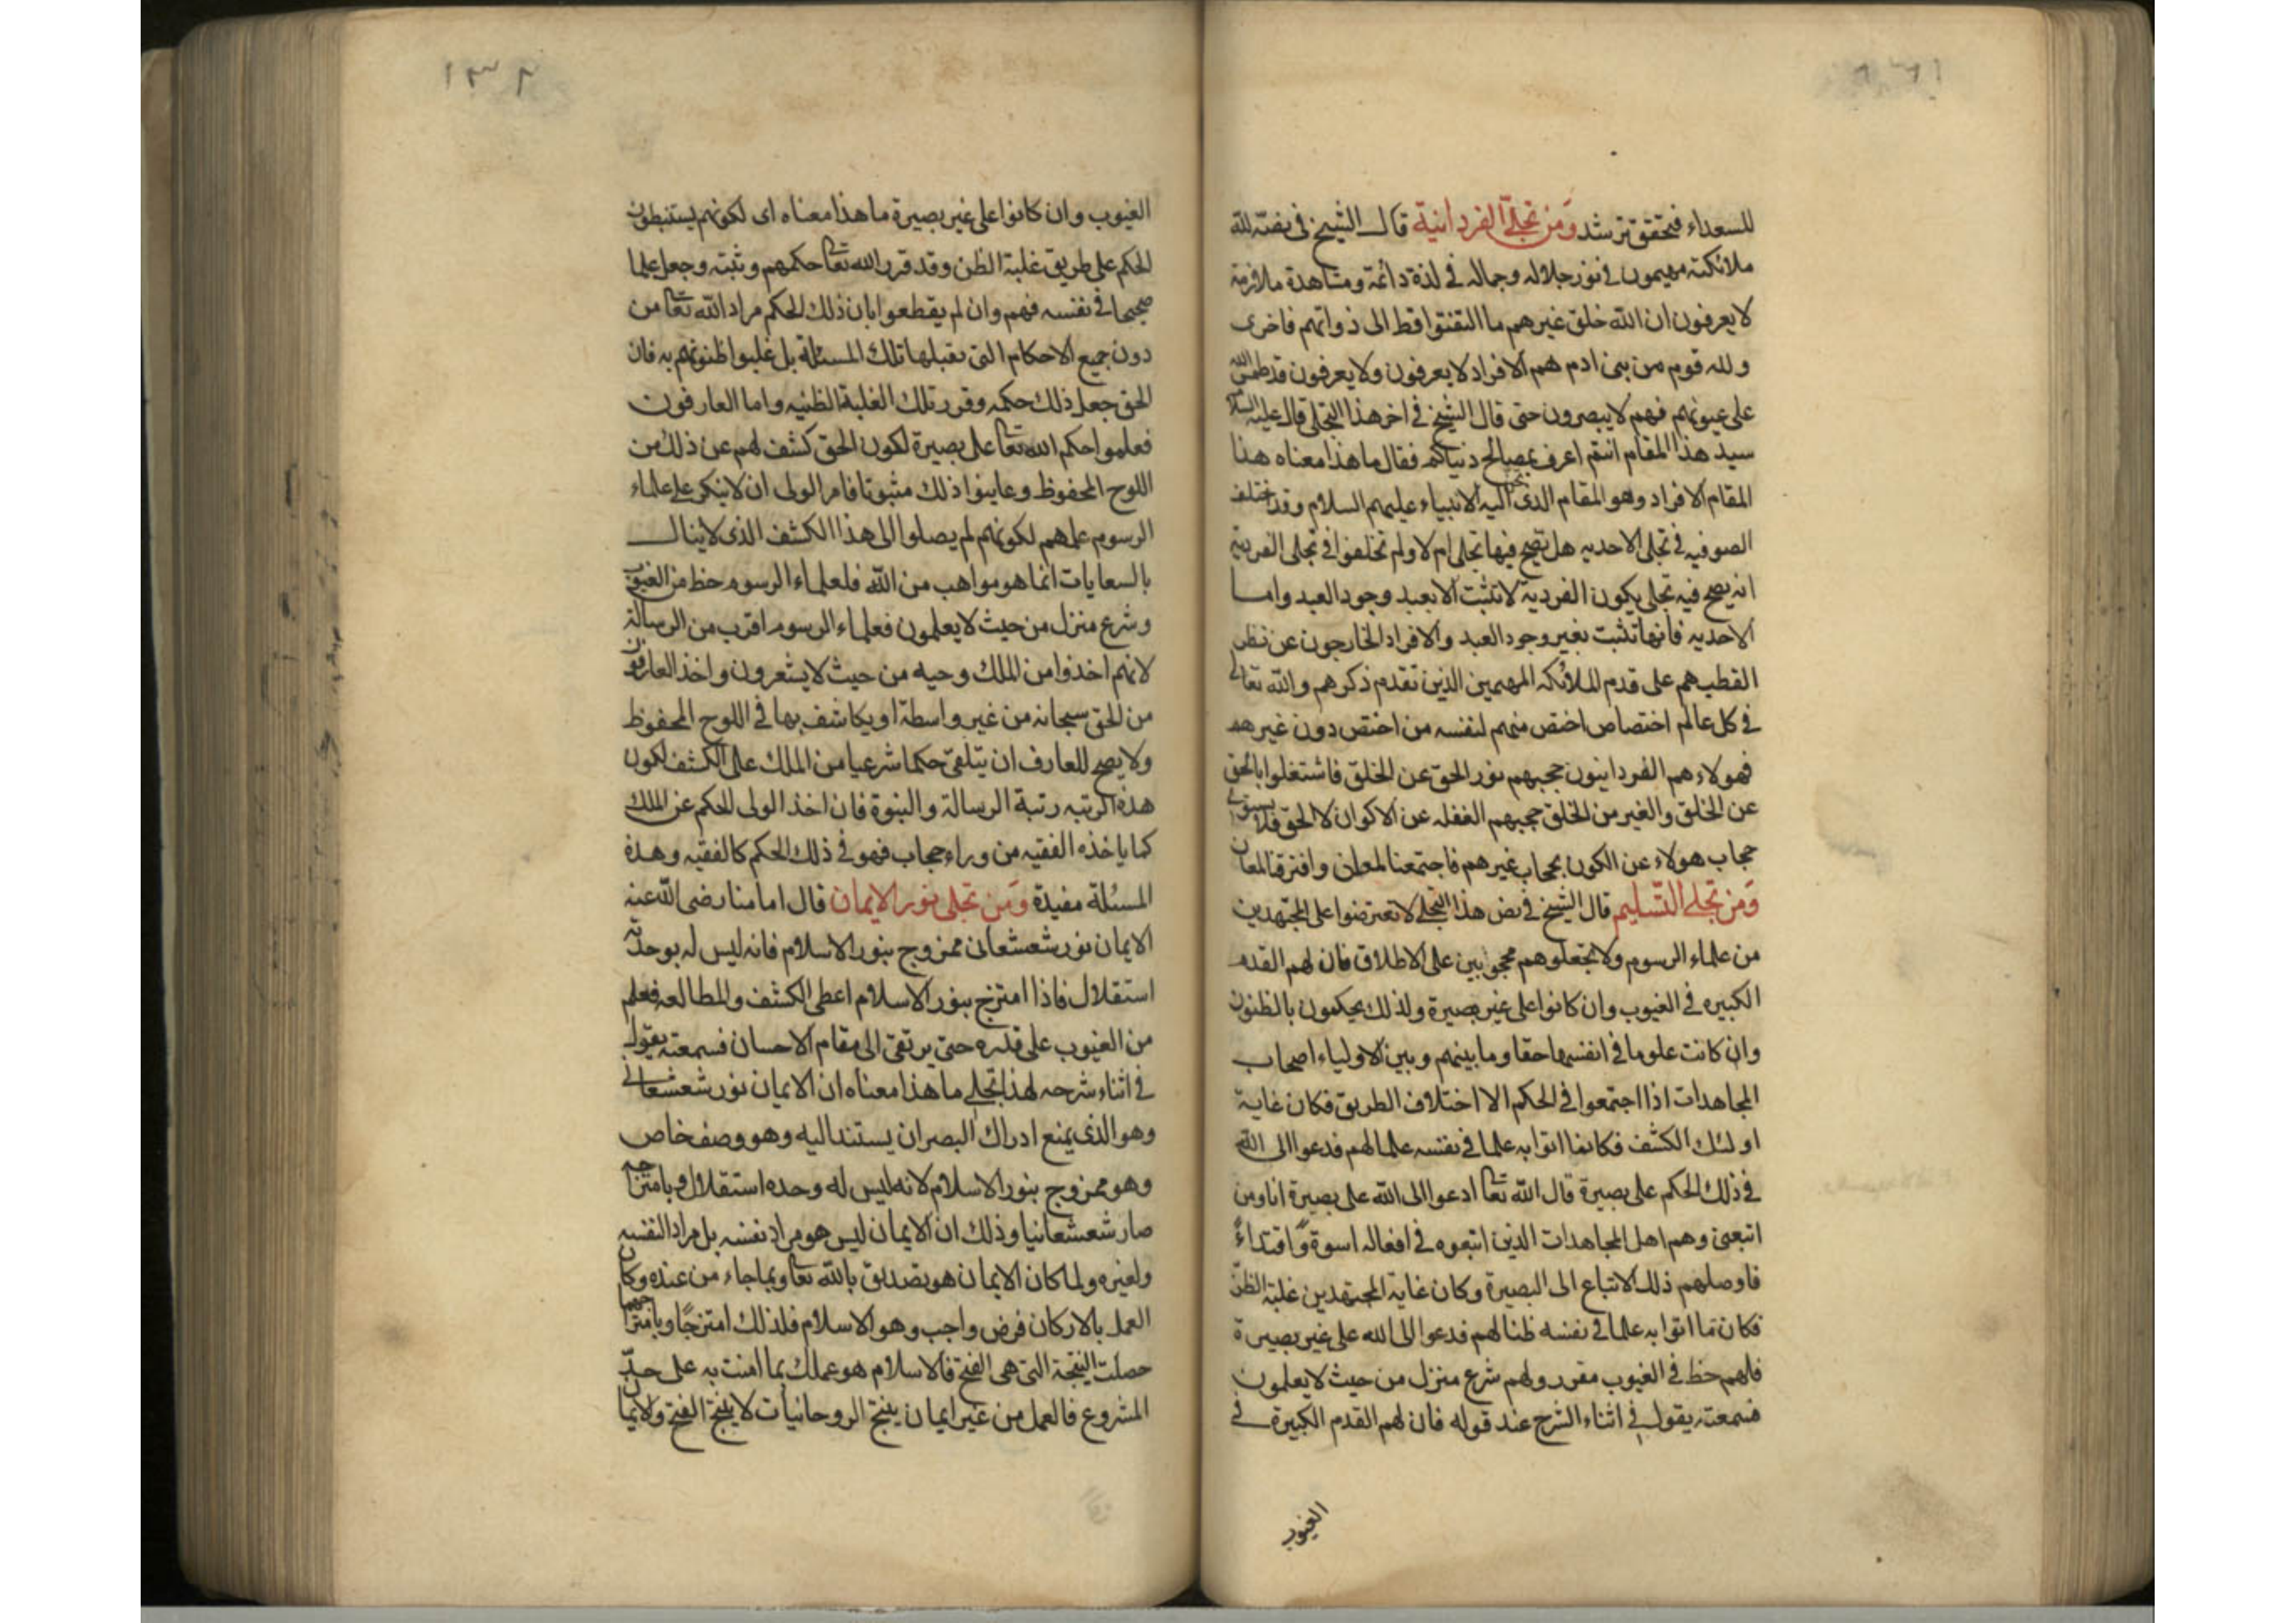 ١٣١
للسعداء فتحقق ترشد ومن تجلى الفردانية قال الشيخ فى نصه لله
ملائكته مهيمون فى نور جلاله وجماله فى لذة دائمة ومشاهدة ملازمة
لا يعرفون ان الله خلق غيرهم ما التفتوا قط الى ذواتهم فاخرى
ولله قوم من بنى ادم هم الافراد لا يعرفون ولا يعرفون قد طمس الله
على عيونهم فهم لا يبصرون حتى قال الشيخ فى اخر هذا التجلى قال عليه السلام
سيد هذا المقام انتم اعرف بمصالح دنياكم فقال ما هذا معناه هذا
المقام الافراد وهو المقام الذى اليه الانبياء عليهم السلام وقد اختلف
الصوفيه فى تجلى الاحديه هل تصح فيها تجلى ام لا ولم تختلفوا فى تجلى الفردية
انه يصح فيه تجلى يكون الفردية لا تثبت الا بعبد وجود العبد واما
الاحديه فانها تثبت بغير وجود العبد والافراد الخارجون عن نظر
القطب هم على قدم الملائكه المهيمين الذين تقدم ذكرهم والله تعالى
فى كل عالم اختصاص اختص منهم لنفسه من اختص دون غيرهم
فهولاء هم الفردانيون حجبهم نور الحق عن الخلق فاشتغلوا بالحق
عن الخلق والغير من الخلق حجبهم الغفله عن الاكوان لا الحق فلا يستوى
حجاب هولاء عن الكون بحجاب غيرهم فاجتمعنا لمعان وافترقنا لمعان
ومن تجلى التسليم قال الشيخ فى نص هذا التجلى لا تعترضوا على المجتهدين
من علماء الرسوم ولا تجعلوهم محجوبين على الاطلاق فان لهم القدم
الكبيره فى الغيوب وان كانوا على غير بصيرة ولذلك يحكمون بالظنون
وان كانت علوما فى انفسها حقا وما بينهم وبين الاولياء اصحاب
المجاهدات اذا اجتمعوا فى الحكم الا اختلاف الطريق فكان غاية
اولئك الكشف فكان ما اتوا به علما فى نفسه علما لهم فدعوا الى الله
فى ذلك الحكم على بصيرة قال الله تعا ادعوا الى الله على بصيرة انا ومن
اتبعنى وهم اهل المجاهدات الذين اتبعوه فى افعاله اسوة واقتداءً
فاوصلهم ذلك الاتباع الى البصيرة وكان غاية المجتهدين غلبة الظن
فكان ما اتوا به علما فى نفسه ظنا لهم فدعوا الى الله على غير بصيرة
فلهم حظ فى الغيوب مقرر ولهم شرع منزل من حيث لا يعلمون
فسمعته يقول فى اثناء الشرح عند قوله فان لهم القدم الكبيرة فى
الغيوب
١٣٢
الغيوب وان كانوا على غير بصيرة ما هذا معناه اى لكونهم يستنبطون
الحكم على طريق غلبة الظن وقد قرر الله تعا حكمهم وثبته وجعل علما
صحيحا فى نفسه فهم وان لم يقطعوا ابان ذلك الحكم مراد الله تعا من
دون جميع الاحكام التى تقبلها تلك المسئلة بل غلبوا ظنونهم به فان
الحق جعل ذلك حكمه وقرر تلك الغلبة الظنيه واما العارفون
فعلموا حكم الله تعا على بصيرة لكون الحق كشف لهم عن ذلك من
اللوح المحفوظ وعاينوا ذلك مثبوتا فامر الولى ان لا ينكر على علماء
الرسوم علمهم لكونهم لم يصلوا الى هذا الكشف الذى لا ينال
بالسعايات انما هو مواهب من الله فلعلماء الرسوم حظ من الغيوب
وشرع منزل من حيث لا يعلمون فعلماء الرسوم اقرب من الرسالة
لانهم اخذوا من الملك وحيه من حيث لا يشعرون واخذ العارفون
من الحق سبحانه من غير واسطة او يكاشف بها فى اللوح المحفوظ
ولا يصح للعارف ان يتلقى حكما شرعيا من الملك على الكشف لكون
هذه الرتبه رتبة الرسالة والنبوة فان اخذ الولى الحكم عن الملك
كما ياخذه الفقيه من وراء حجاب فهو فى ذلك الحكم كالفقيه وهذه
المسئلة مفيدة ومن تجلى نور الايمان قال امامنا رضى الله عنه
الايمان نور شعشعانى ممزوج بنور الاسلام فانه ليس له بوحدته
استقلال فاذا امتزج بنور الاسلام اعطى الكشف والمطالعه فعلم
من الغيوب على قدره حتى يرتقى الى مقام الاحسان فسمعته يقول
فى اثناء شرحه لهذا تجلى ما هذا معناه ان الايمان نور شعشعانى
وهو الذى يمنع ادراك البصر ان يستند اليه وهو وصف خاص
وهو ممزوج بنور الاسلام لانه ليس له وحده استقلال وبامتزاجه
صار شعشعانيا وذلك ان الايمان ليس هو مراد نفسه بل مراد لنفسه
ولغيره ولما كان الايمان هو تصديق بالله تعا وبما جاء من عنده وكان
العمل بالاركان فرض واجب وهو الاسلام فلذلك امتزجا وبامتزاجهما
حصلت النتيجة التى هى الفتح فالاسلام هو عملك بما امنت به على حدّ
المشروع فالعمل من غير ايمان ينتج الروحانيات لا ينتج الفتح ولايمان